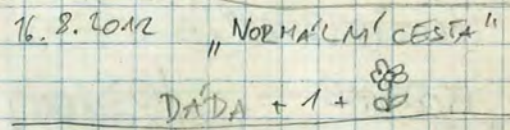 16.8.2012 „NORMÁLNÍ CESTA"
DÁĎA + 1 +